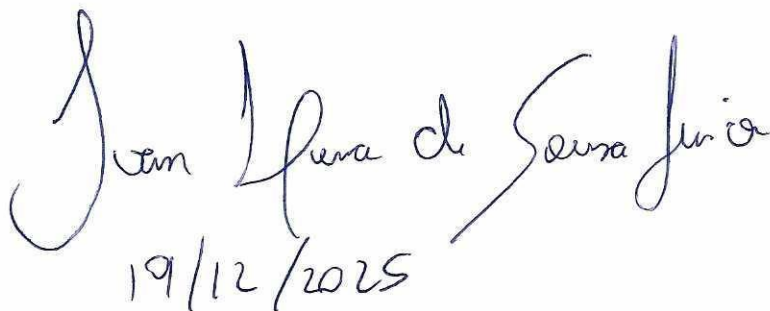 Ivan de Sousa Junior
19/12/2025